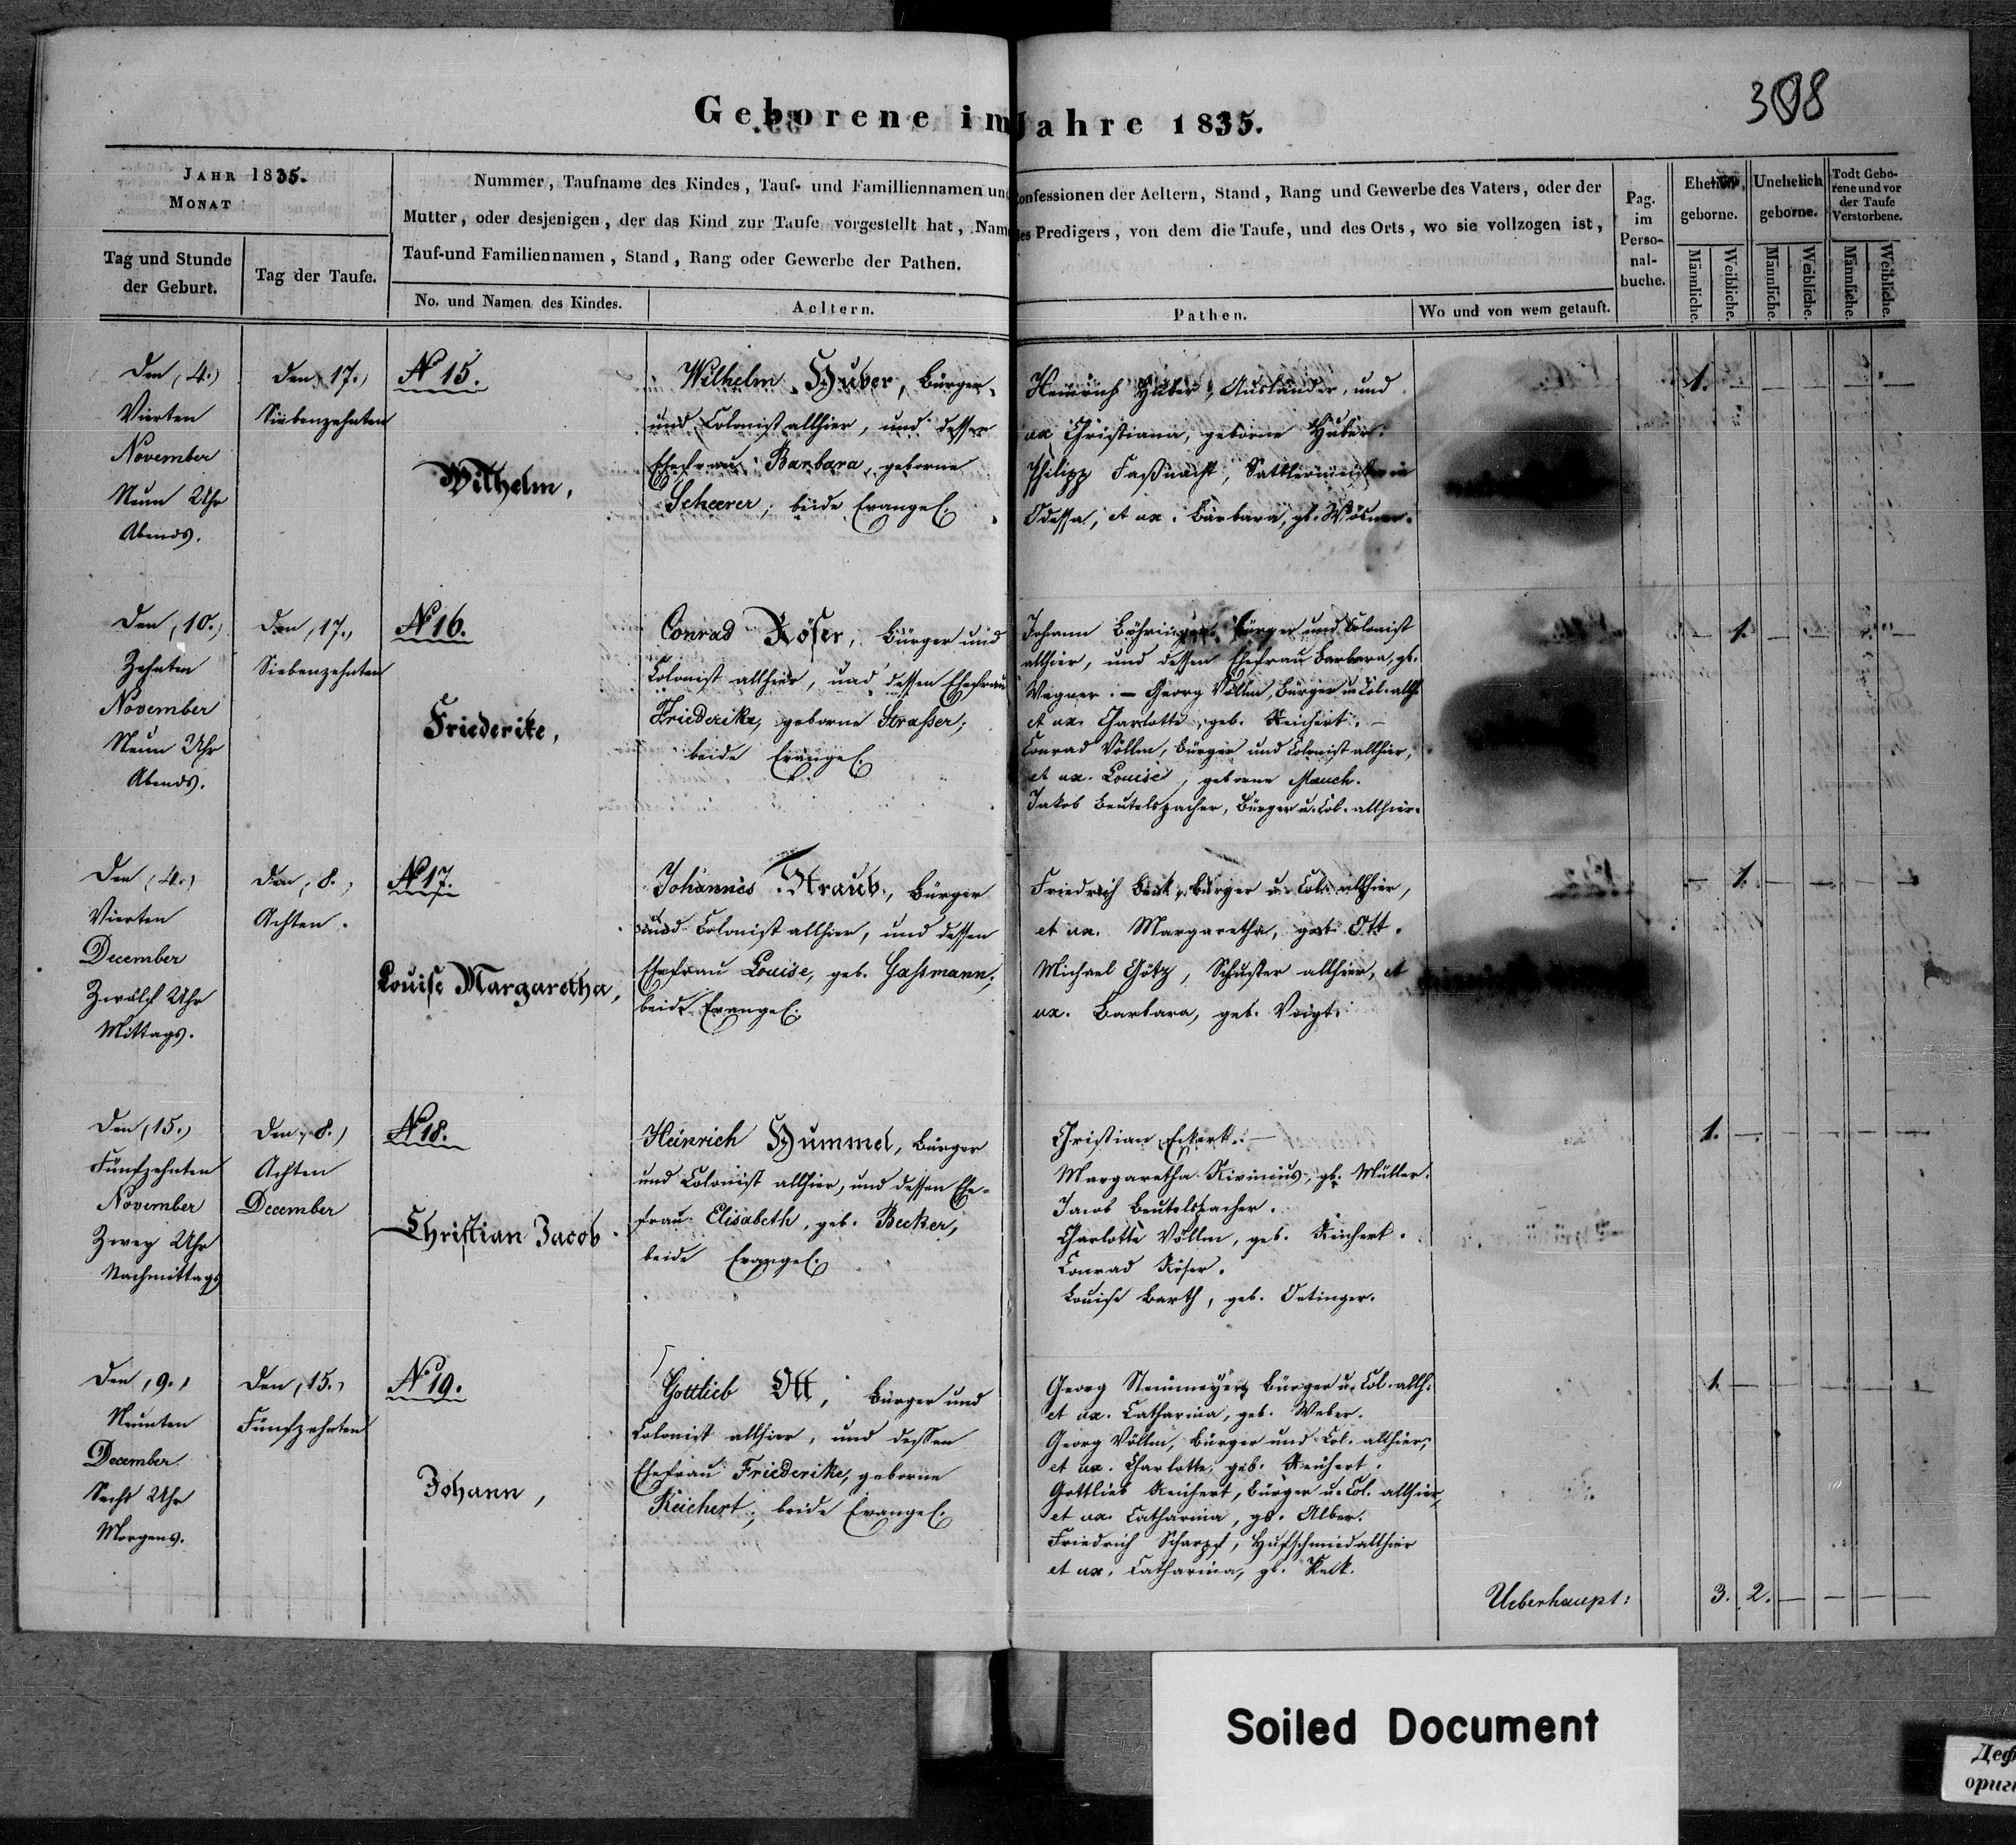 Geborene im Jahre 1835.
308
JAHR 1835.
MONAT
Tag und Stunde
der Geburt.
Tag der Taufe.
Nummer, Taufname des Kindes, Tauf- und Familliennamen und Confessionen der Aeltern, Stand, Rang und Gewerbe des Vaters, oder der
Mutter, oder desjenigen, der das Kind zur Taufe vorgestellt hat, Name des Predigers, von dem die Taufe, und des Orts, wo sie vollzogen ist,
Tauf-und Familiennamen, Stand, Rang oder Gewerbe der Pathen.
No. und Namen des Kindes.
Aeltern.
Pathen.
Wo und von wem getauft.
Pag.
im
Perso-
nal-
buche.
Eheliche
geborne.
Unehelich
geborne.
Todt Gebo-
rene und vor
der Taufe
Verstorbene.
Männliche.
Weibliche.
Männliche.
Weibliche.
Männliche.
Weibliche.
Den (4.)
Vierten
November
Neun Uhr
Abends.
Den 17.)
Siebenzehnten
No 15.
Wilhelm,
Wilhelm Huber, Bürger
und Colonist allhier, und dessen
Ehefrau Barbara, geborne
Scheerer; beide Evangel.
Heinrich Huber, Ausländer, und
ux Christiana, geborne Huber.
Philipp Faßnacht, Sattlermeister in
Odessa, et ux. Barbara, gb.
1.
Den (10.)
Zehnten
November
Neun Uhr
Abends.
Den (17.)
Siebenzehnten
No 16.
Friederike,
Conrad Röser, Bürger und
Colonist allhier, und dessen Ehefrau
Friederika, geborne Strasser;
beide Evangel.
Johann Böhringer, Bürger und Colonist
allhier, und dessen Ehefrau Barbara, gb.
Wagner. – Georg Vollm, Bürger u. Col. allh.
et ux. Charlotte, geb. Reichert. –
Conrad Völlm, Bürger und Colonist allhier,
et ux. Louise, geborne Mauch.
Jakob Beutelspacher, Bürger u. Col. allhier.
1.
Den (4.)
Vierten
December
Zwölf Uhr
Mittags.
Den (8.)
Achten.
No 17.
Louise Margaretha,
Johannes Straub, Bürger
und Colonist allhier, und dessen
Ehefrau Louise, geb. Gassmann;
beide Evangel.
Friedrich Bürger u. Col. allhier,
et ux. Margaretha, geb. Ott.
Michael Götz, Schuster allhier, et
ux. Barbara, geb. Voigt.
1.
Den (15.)
Fünfzehnten
November
Zwey Uhr
Nachmittags
Den (8.)
Achten
December
No 18.
Christian Jacob
Heinrich Hummel, Bürger
und Colonist allhier, und dessen Ehe-
frau Elisabeth, geb. Becker,
beide Evangel.
Christian Eckert. –
Margaretha Rivinius, gb. Müller.
Jacob Beutelspacher.
Charlotte Völlm, geb. Reichert.
Conrad Röser.
Louise Barth, geb. Oetinger.
1.
Den (9.)
Neunten
December
Sechs Uhr
Morgens.
Den (15.)
Fünfzehnten
No 19.
Johann,
Gottlieb Ott, Bürger und
Colonist allhier, und dessen
Ehefrau Friederike, geborne
Reichert; beide Evangel.
Georg Steinmeyer, Bürger u. Col. allh.
et ux. Catharina, geb. Weber.
Georg Völlm, Bürger und Col. allhier,
et ux. Charlotte, geb. Reichert.
Gottlieb Reichert, Bürger u. Col. allhier,
et ux. Catharina, gb. Alber.
Friedrich Scharpf, Hufschmied allhier
et ux. Catharina, gb.
1.
Ueberhaupt: 3. 2.
Soiled Document
Деф
ориги